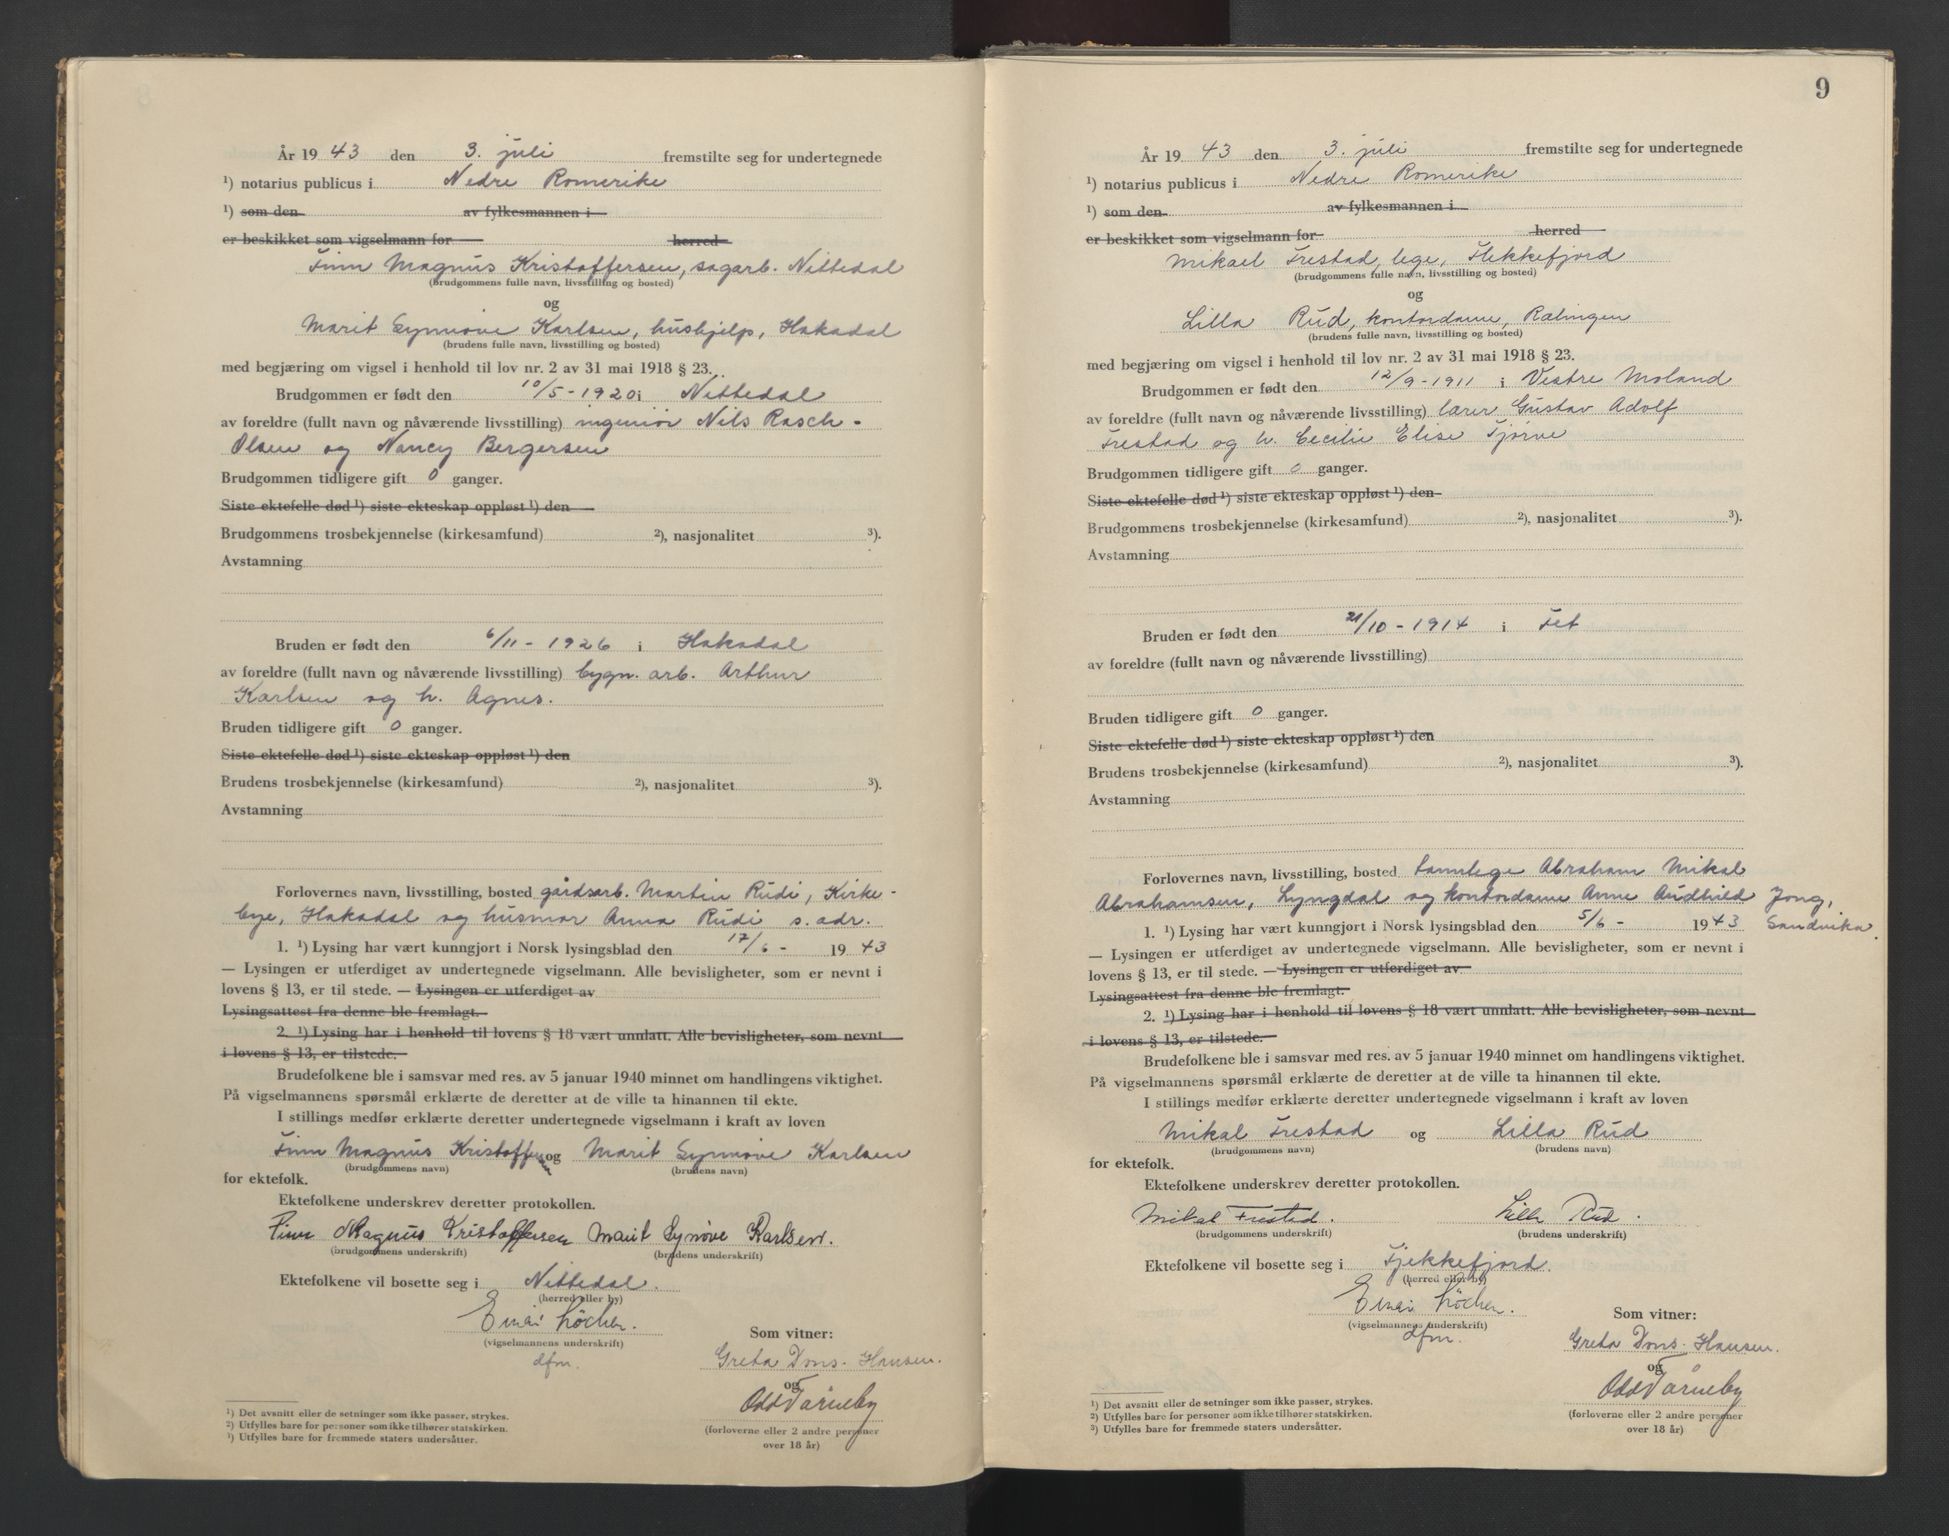 År 19 43 den 3. juli fremstilte seg for undertegnede
¹) notarius publicus i Nedre Romerike
¹) som den av fylkesmannen i
er beskikket som vigselmann for herred
Finn Magnus Kristoffersen, sagarb. Nittedal
(brudgommens fulle navn, livsstilling og bosted)
og
Marit Synnøve Karlsen, hushjelp, Hakadal
(brudens fulle navn, livsstilling og bosted)
med begjæring om vigsel i henhold til lov nr. 2 av 31 mai 1918 § 23.
Brudgommen er født den 10/5 - 1920 i Nittedal
av foreldre (fullt navn og nåværende livsstilling) ingeniør Nils Rasch-
Olsen og Nancy Bergersen
Brudgommen tidligere gift 0 ganger.
Siste ektefelle død ¹) siste ekteskap oppløst ¹) den
Brudgommens trosbekjennelse (kirkesamfund) ²), nasjonalitet ³).
Avstamning
Bruden er født den 6/11 - 1926 i Hakadal
av foreldre (fullt navn og nåværende livsstilling) bygn. arb. Arthur
Karlsen og h. Agnes.
Bruden tidligere gift 0 ganger.
Siste ektefelle død ¹) siste ekteskap oppløst ¹) den
Brudens trosbekjennelse (kirkesamfund) ²), nasjonalitet ³).
Avstamning
Forlovernes navn, livsstilling, bosted gårdsarb. Martin Rudi, Kirke-
bye, Hakadal og husmor Anna Rudi s. adr.
1. ¹) Lysing har vært kunngjort i Norsk lysingsblad den 17/6 - 19 43
— Lysingen er utferdiget av undertegnede vigselmann. Alle bevisligheter, som er nevnt i
lovens § 13, er til stede. — Lysingen er utferdiget av
Lysingsattest fra denne ble fremlagt.
2. ¹) Lysing har i henhold til lovens § 18 vært unnlatt. Alle bevisligheter, som nevnt
i lovens § 13, er tilstede.
Brudefolkene ble i samsvar med res. av 5 januar 1940 minnet om handlingens viktighet.
På vigselmannens spørsmål erklærte de deretter at de ville ta hinannen til ekte.
I stillings medfør erklærte deretter undertegnede vigselmann i kraft av loven
Finn Magnus Kristoffersen og Marit Synnøve Karlsen
(brudgommens navn) (brudens navn)
for ektefolk.
Ektefolkene underskrev deretter protokollen.
Finn Magnus Kristoffersen Marit Synøve Karlsen.
(brudgommens underskrift) (brudens underskrift)
Ektefolkene vil bosette seg i Nittedal.
(herred eller by)
Einar Löchen.
(vigselmannens underskrift)
dfm.
Som vitner:
Greta Dons-Hansen.
og
Odd Tårneby
(forloverne eller 2 andre personer
over 18 år)
¹) Det avsnitt eller de setninger som ikke passer, strykes.
²) Utfylles bare for personer som ikke tilhører statskirken.
³) Utfylles bare for fremmede staters undersåtter.
9
År 19 43 den 3. juli fremstilte seg for undertegnede
¹) notarius publicus i Nedre Romerike
¹) som den av fylkesmannen i
er beskikket som vigselmann for herred
Mikael Frestad, lege, Flekkefjord
(brudgommens fulle navn, livsstilling og bosted)
og
Lilla Rud, kontordame, Rælingen
(brudens fulle navn, livsstilling og bosted)
med begjæring om vigsel i henhold til lov nr. 2 av 31 mai 1918 § 23.
Brudgommen er født den 12/9 - 1911 i Vestre Moland
av foreldre (fullt navn og nåværende livsstilling) lærer Gustav Adolf
Frestad og h. Cecilie Elise Tjørve
Brudgommen tidligere gift 0 ganger.
Siste ektefelle død ¹) siste ekteskap oppløst ¹) den
Brudgommens trosbekjennelse (kirkesamfund) ²), nasjonalitet ³).
Avstamning
Bruden er født den 21/10 - 1914 i Fet
av foreldre (fullt navn og nåværende livsstilling)
Bruden tidligere gift 0 ganger.
Siste ektefelle død ¹) siste ekteskap oppløst ¹) den
Brudens trosbekjennelse (kirkesamfund) ²), nasjonalitet ³).
Avstamning
Forlovernes navn, livsstilling, bosted tannlege Abraham Mikal
Abrahamsen, Lyngdal og kontordame Anne Audhild Jong,
1. ¹) Lysing har vært kunngjort i Norsk lysingsblad den 5/6 - 19 43 Sandvika.
— Lysingen er utferdiget av undertegnede vigselmann. Alle bevisligheter, som er nevnt i
lovens § 13, er til stede. — Lysingen er utferdiget av
Lysingsattest fra denne ble fremlagt.
2. ¹) Lysing har i henhold til lovens § 18 vært unnlatt. Alle bevisligheter, som nevnt
i lovens § 13, er tilstede.
Brudefolkene ble i samsvar med res. av 5 januar 1940 minnet om handlingens viktighet.
På vigselmannens spørsmål erklærte de deretter at de ville ta hinannen til ekte.
I stillings medfør erklærte deretter undertegnede vigselmann i kraft av loven
Mikal Frestad og Lilla Rud
(brudgommens navn) (brudens navn)
for ektefolk.
Ektefolkene underskrev deretter protokollen.
Mikal Frestad. Lilla Rud.
(brudgommens underskrift) (brudens underskrift)
Ektefolkene vil bosette seg i Fjekkefjord.
(herred eller by)
Einar Löchen.
(vigselmannens underskrift)
dfm.
Som vitner:
Greta Dons-Hansen.
og
Odd Tårneby
(forloverne eller 2 andre personer
over 18 år)
¹) Det avsnitt eller de setninger som ikke passer, strykes.
²) Utfylles bare for personer som ikke tilhører statskirken.
³) Utfylles bare for fremmede staters undersåtter.